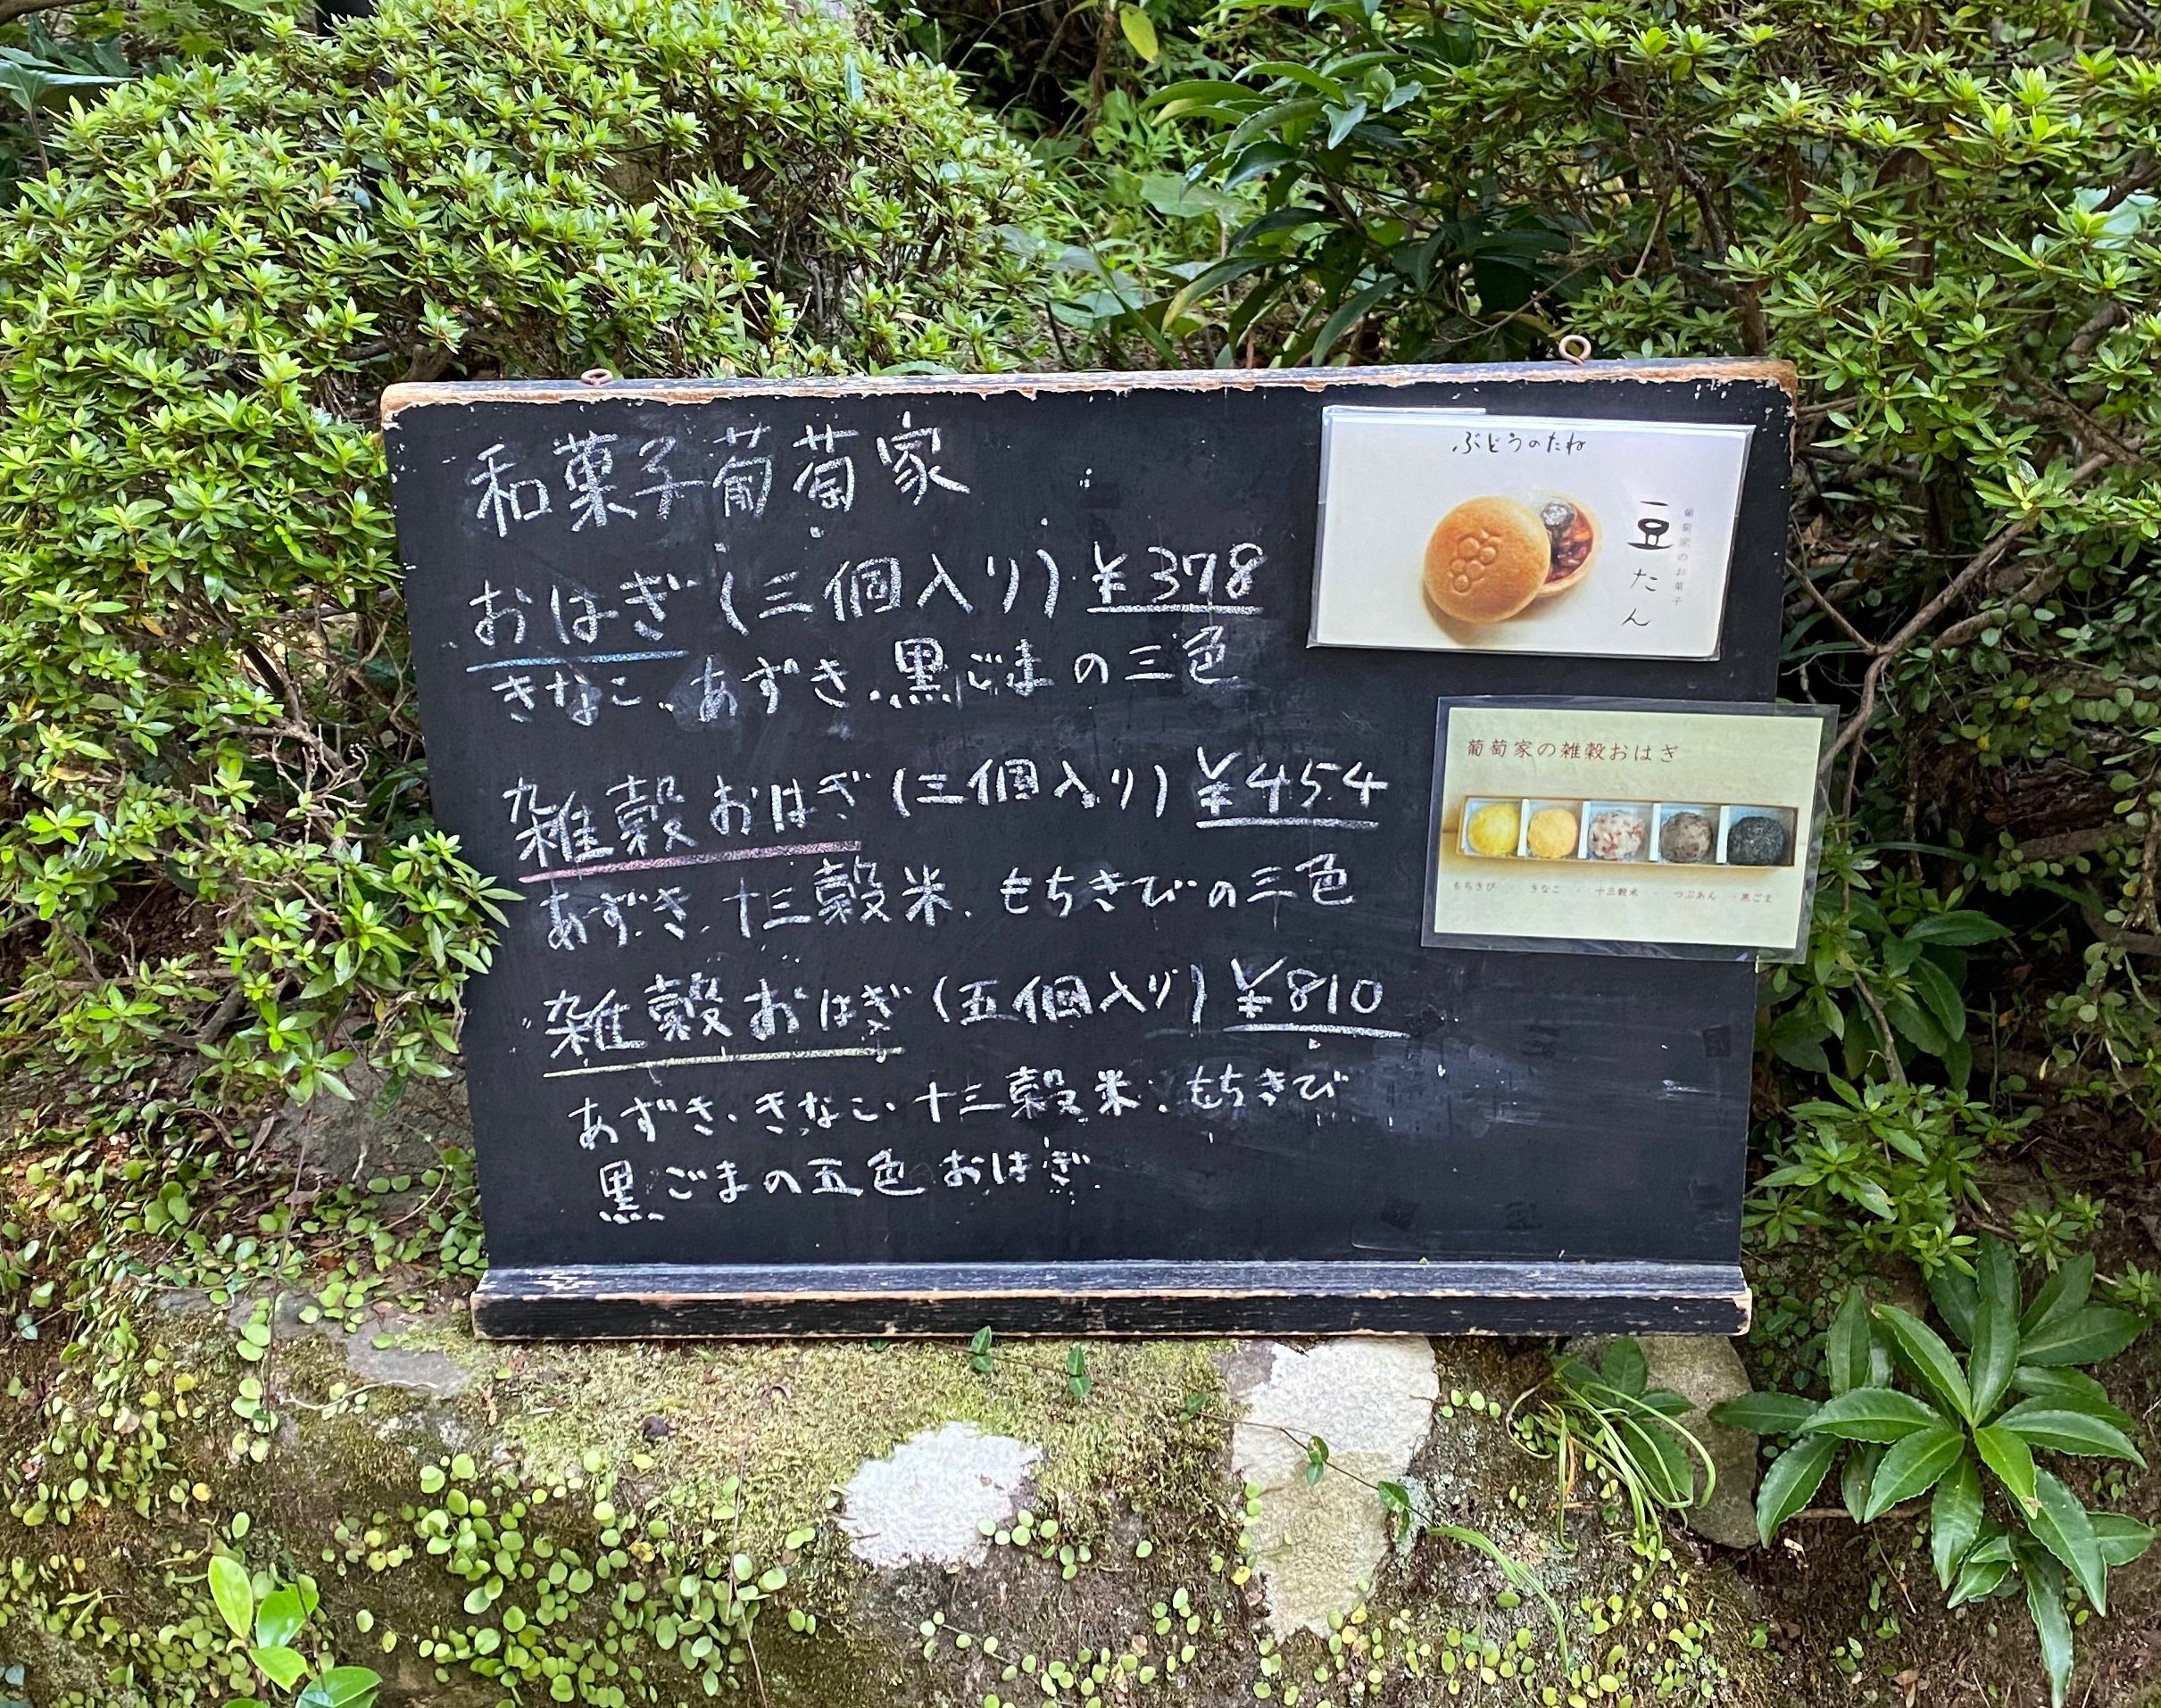 和菓子葡萄家
おはぎ(三個入り)¥378
きなこ、あずき、黒ごまの三色
雑穀おはぎ(三個入り)¥454
あずき、十三穀米、もちきびの三色
雑穀おはぎ(五個入り)¥810
あずき、きなこ、十三穀米、もちきび
黒ごまの五色おはぎ
ぶどうのたね
葡萄家のお菓子
豆たん
葡萄家の雑穀おはぎ
もちきび・きなこ・十三穀米・つぶあん・黒ごま